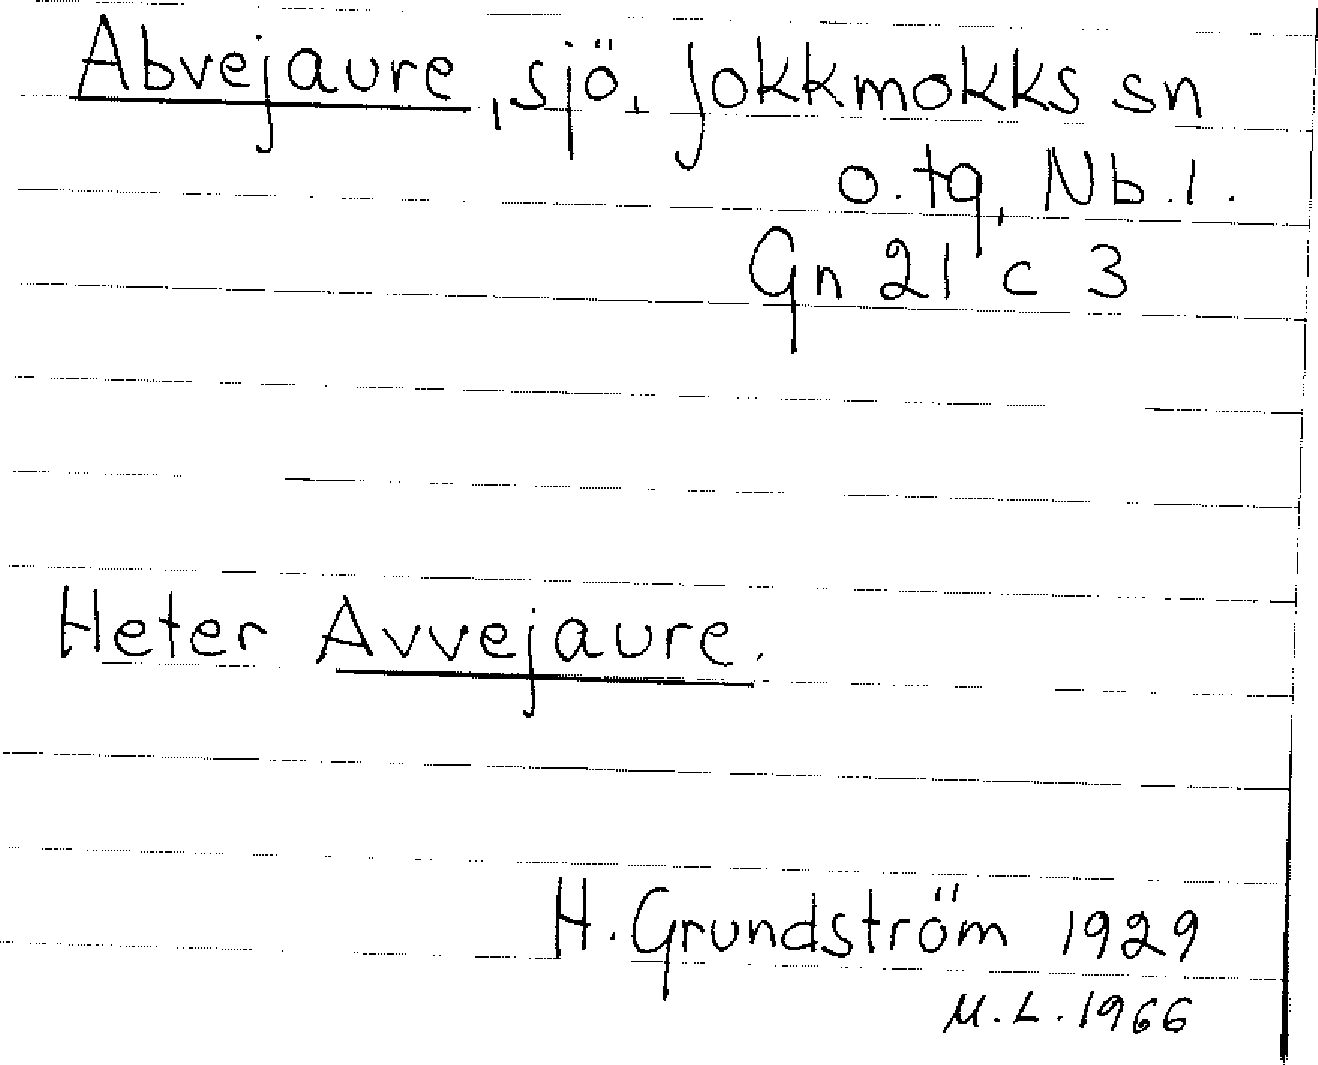 Abvejaure, sjö. Jokkmokks sn
o. tg, Nb. l.
Gn 21 c 3
Heter Avvejaure.
H. Grundström 1929
M. L. 1966